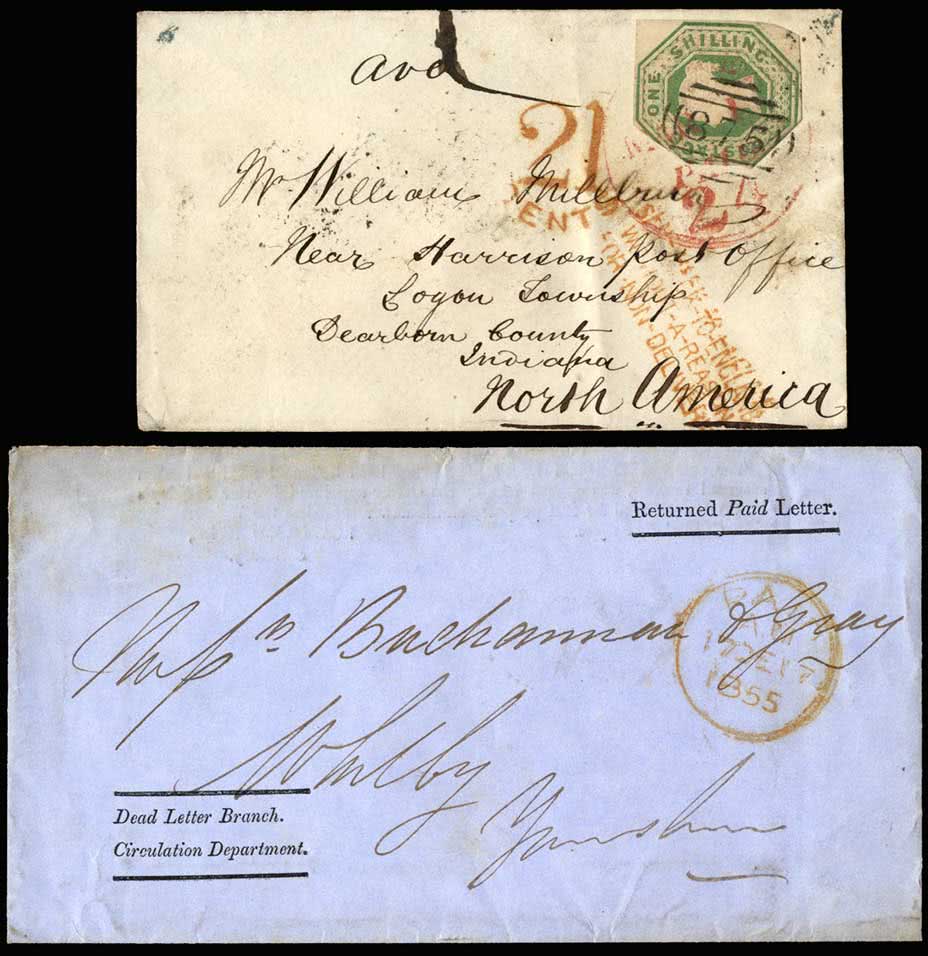 ONE SHILLING
POSTAGE
and
21
CENTS
24
Mr William Millburn
Near Harrison Post Office
Logan Township
Dearborn County
Indiana
North America
Returned Paid Letter.
Messrs Buchannan & Gray
Whitby
Yorkshire
PAID
17 DE 17
1855
Dead Letter Branch.
Circulation Department.